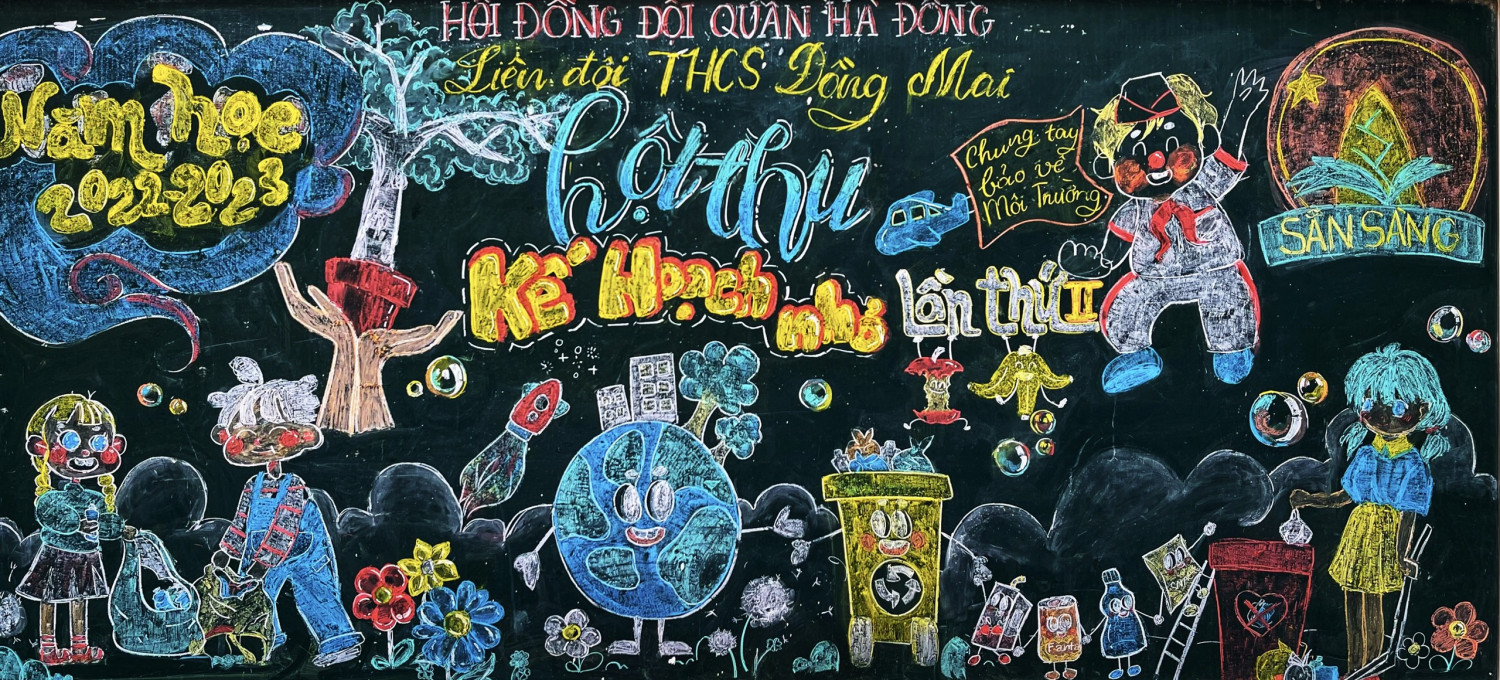 HỘI ĐỒNG ĐỘI QUẬN HÀ ĐÔNG
Liên đội THCS Đồng Mai
Năm học
2022-2023
hội thu
Kế Hoạch nhỏ
Lần thứ II
Chung tay
bảo vệ
Môi Trường
SẴN SÀNG
Fanta